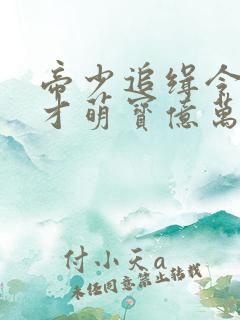 帝少追缉令
才萌寶億萬
付小天a
未经同意禁止转载